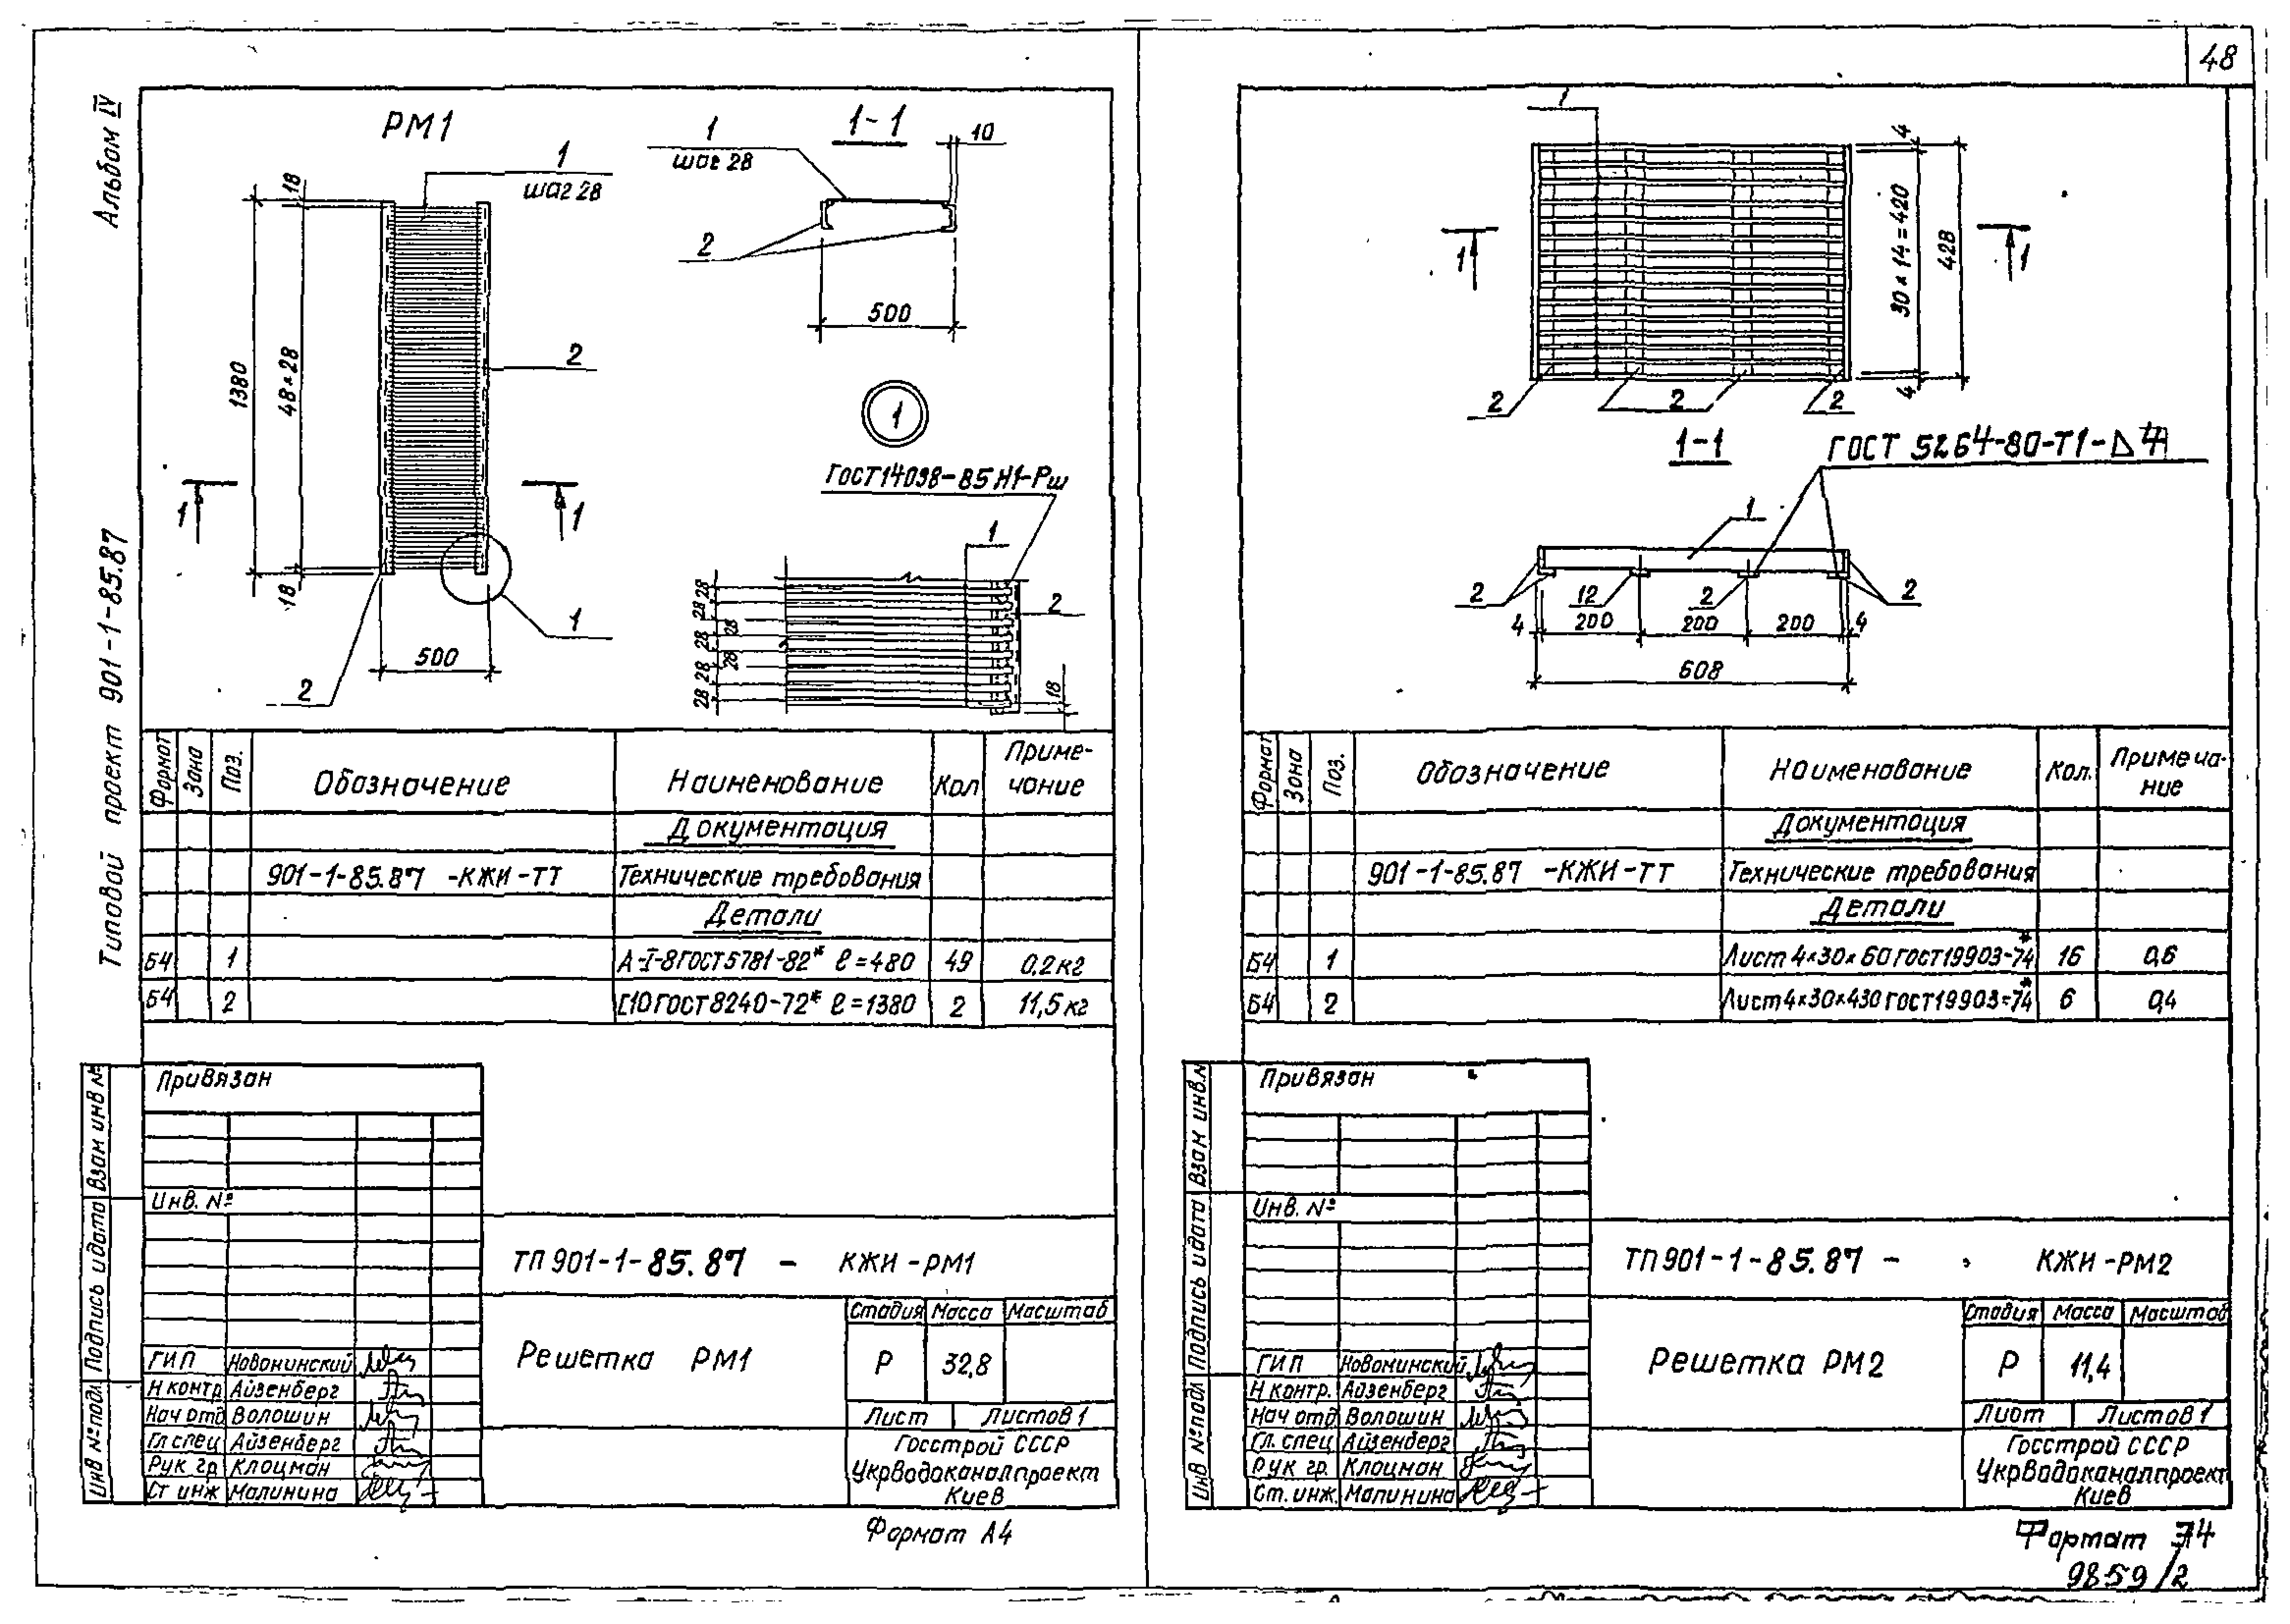 48
Альбом IV
Типовой проект 901-1-85.87
РМ1
1
шаг 28
18
1380
48×28
18
2
1
1
1
500
2
1-1
1
шаг 28
10
2
500
1
ГОСТ14098-85 Н1-Рш
1
2
28
28
28
28
28
28
28
18
Формат
Зона
Поз.
Обозначение
Наименование
Кол
Приме-
чание
Документация
901-1-85.87 -КЖИ-ТТ
Технические требования
Детали
Б4 1 А-I-8 ГОСТ5781-82* ℓ=480 49 0,2кг
Б4 2 [10 ГОСТ 8240-72* ℓ=1380 2 11,5кг
Привязан
Инв. №
Взам инв №
Подпись и дата
Инв № подл
ТП 901-1-85.87 - КЖИ-РМ1
Решетка РМ1
Стадия Масса Масштаб
Р 32,8
Лист Листов 1
Госстрой СССР
Укрводоканалпроект
Киев
ГИП Новоминский
Н контр Айзенберг
Нач отд Волошин
Гл спец Айзенберг
Рук гр Клоцман
Ст инж Малинина
Формат А4
1
1
1
4
30×14=420
428
4
2
2
2
1-1
ГОСТ 5264-80-Т1-Δ4
1
2
12
2
2
4
200
200
200
4
608
Формат
Зона
Поз.
Обозначение
Наименование
Кол.
Примеча-
ние
Документация
901-1-85.87 -КЖИ-ТТ
Технические требования
Детали
Б4 1 Лист 4×30×60 ГОСТ19903-74* 16 0,6
Б4 2 Лист 4×30×430 ГОСТ19903-74* 6 0,4
Привязан
Инв. №
Взам инв.№
Подпись и дата
Инв № подл
ТП 901-1-85.87 - КЖИ-РМ2
Решетка РМ2
Стадия Масса Масштаб
Р 11,4
Лист Листов 1
Госстрой СССР
Укрводоканалпроект
Киев
ГИП Новоминский
Н контр. Айзенберг
Нач отд Волошин
Гл. спец Айзенберг
Рук гр. Клоцман
Ст. инж. Малинина
Формат
9859/2